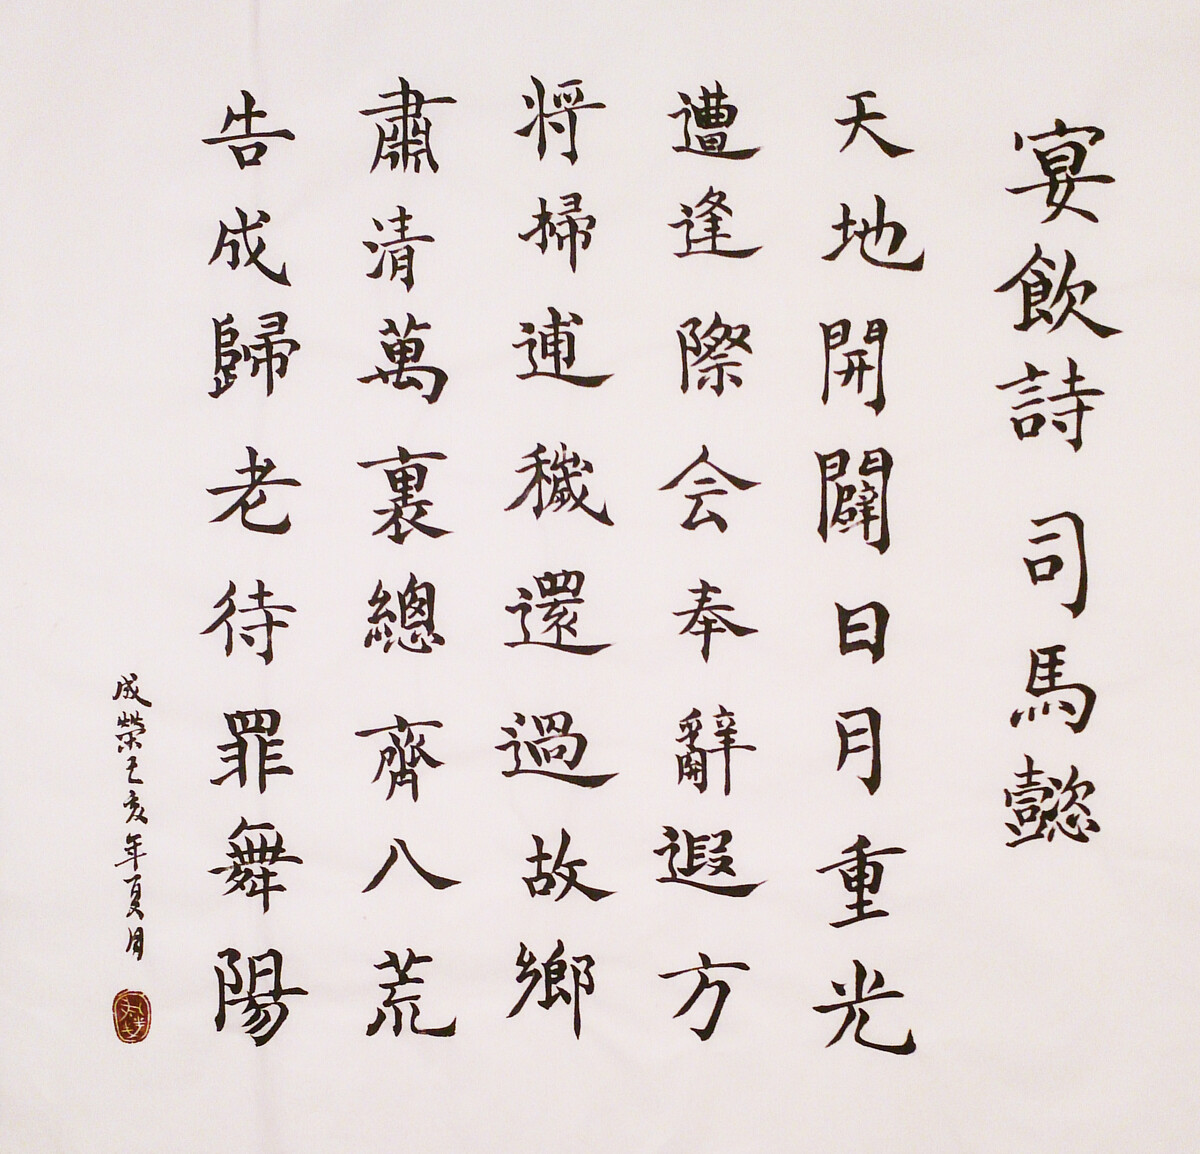 宴飲詩 司馬懿
天地開闢日月重光
遭逢際会奉辭遐方
将掃逋穢還過故鄉
肅清萬裏總齊八荒
告成歸老待罪舞陽
成榮己亥年夏月